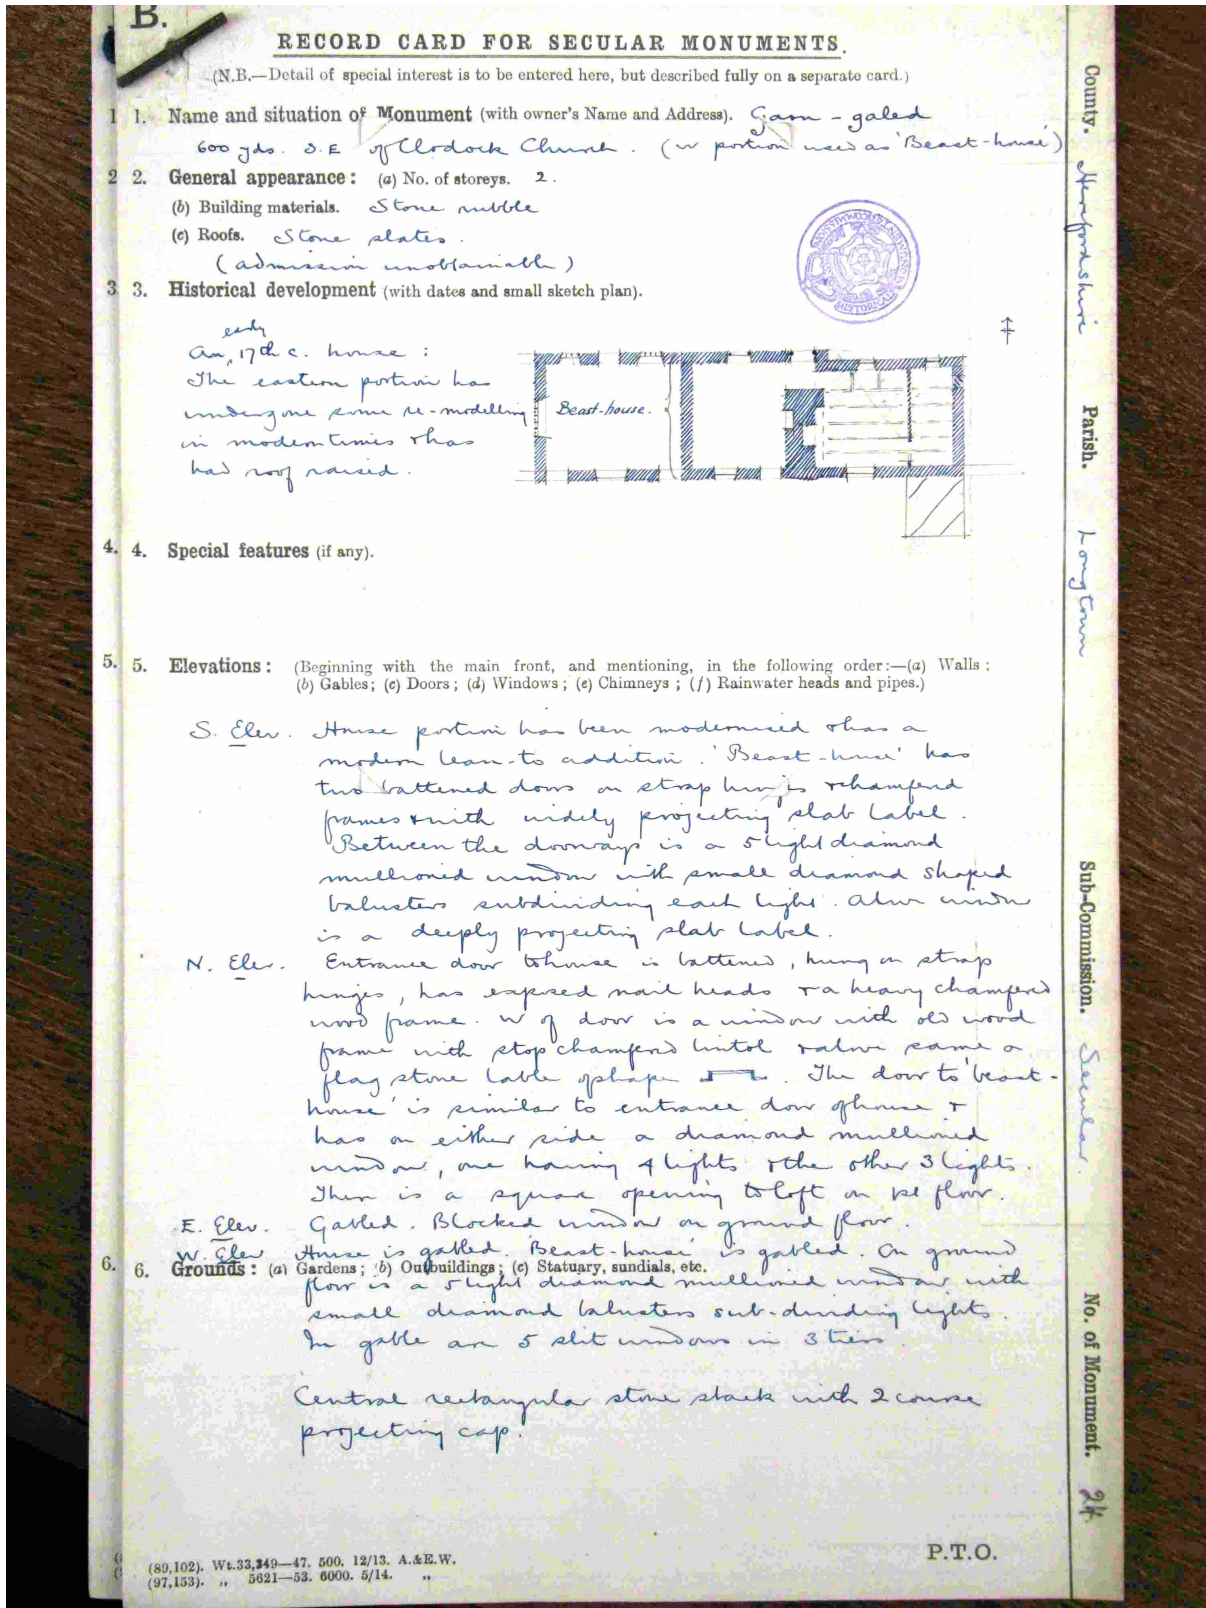 B.
RECORD CARD FOR SECULAR MONUMENTS.
(N.B.—Detail of special interest is to be entered here, but described fully on a separate card.)
1 1. Name and situation of Monument (with owner's Name and Address). Garn-galed
600 yds. S.E of Clodock Church. (W portion used as 'Beast-house')
2 2. General appearance: (a) No. of storeys. 2.
(b) Building materials. Stone rubble
(c) Roofs. Stone slates.
(admission unobtainable)
3 3. Historical development (with dates and small sketch plan).
early
An, 17th c. house:
The eastern portion has
undergone some re-modelling
in modern times & has
had roof raised.
Beast-house.
4. 4. Special features (if any).
5. 5. Elevations: (Beginning with the main front, and mentioning, in the following order:—(a) Walls;
(b) Gables; (c) Doors; (d) Windows; (e) Chimneys; (f) Rainwater heads and pipes.)
S. Elev. House portion has been modernised & has a
modern lean-to addition. 'Beast-house' has
two battened doors on strap hinges & chamfered
frames & with widely projecting slab label.
Between the doorways is a 5 light diamond
mullioned window with small diamond shaped
balusters subdividing each light. Above window
is a deeply projecting slab label.
N. Elev. Entrance door to house is battened, hung on strap
hinges, has exposed nail heads & a heavy chamfered
wood frame. W of door is a window with old wood
frame with stop chamfered lintol & above same a
flag stone lable of shape . The door to 'beast-
house' is similar to entrance door of house &
has on either side a diamond mullioned
window, one having 4 lights & the other 3 lights.
There is a square opening to loft on 1st floor.
E. Elev. Gabled. Blocked window on ground floor.
W. Elev House is gabled. 'Beast-house' is gabled. On ground
6. 6. Grounds: (a) Gardens; (b) Outbuildings; (c) Statuary, sundials, etc.
floor is a 5 light diamond mullioned window with
small diamond balusters sub-dividing lights.
In gable are 5 slit windows in 3 tiers.
Central rectangular stone stack with 2 course
projecting cap.
P.T.O.
(89,102). Wt.33,349—47. 500. 12/13. A.&E.W.
(97,153). „ 5621—53. 6000. 5/14. „
County. Herefordshire
Parish. Longtown
Sub-Commission. Secular.
No. of Monument. 24